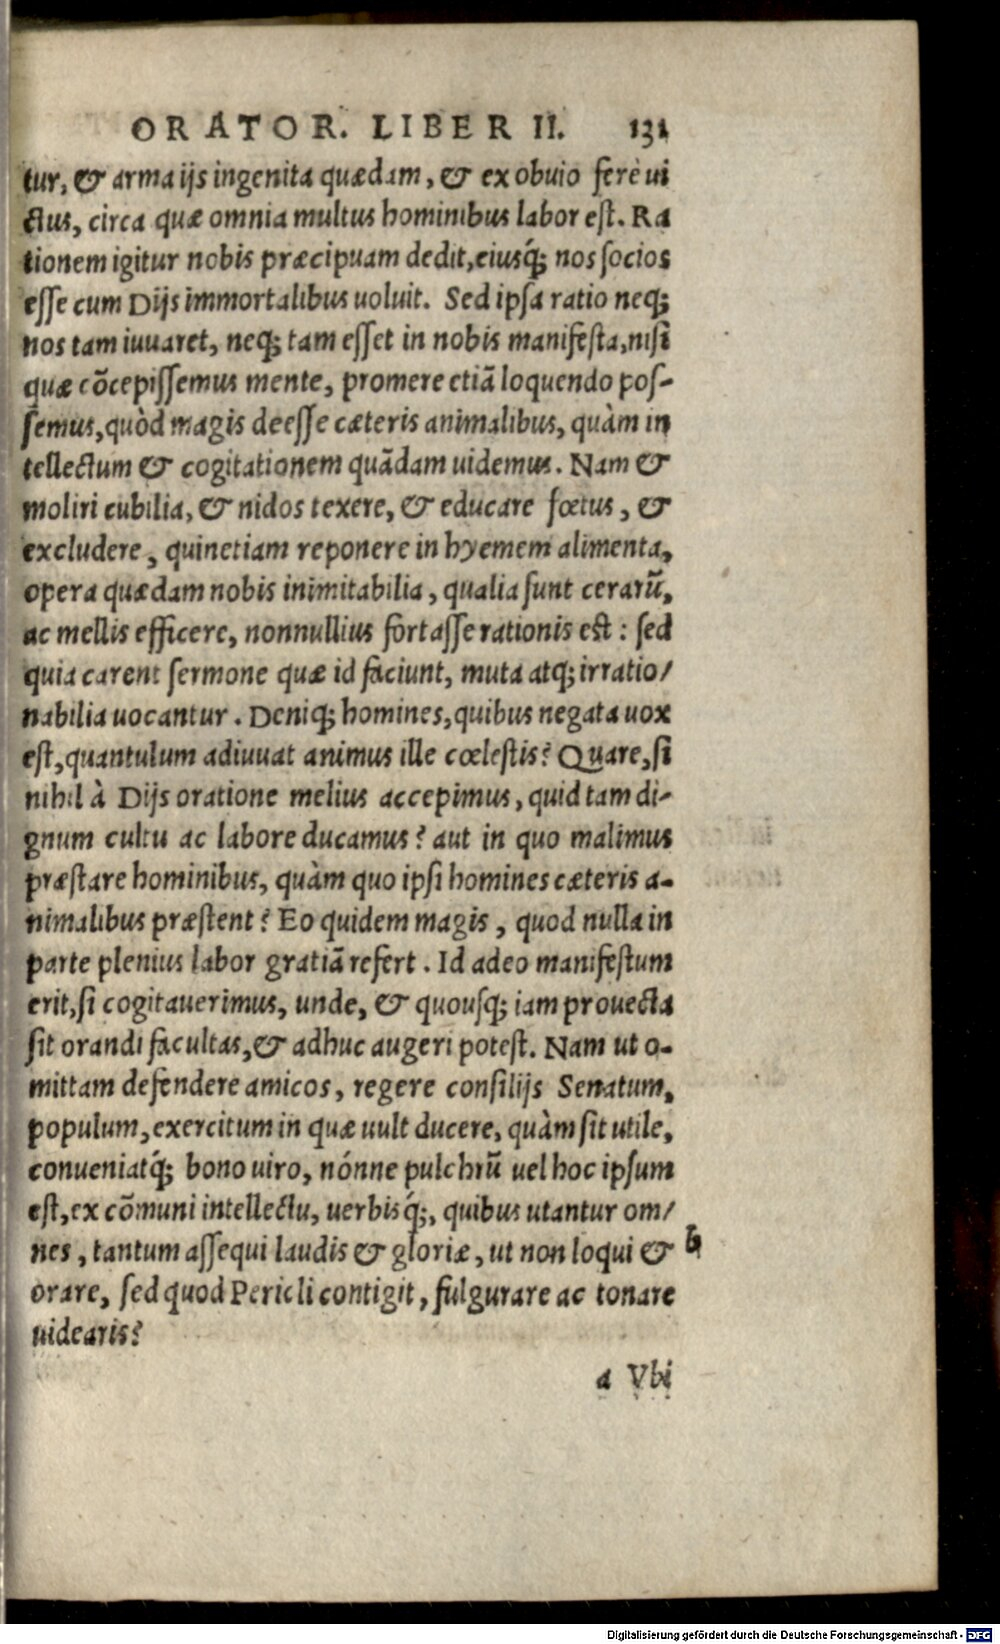 ORATOR. LIBER II. 131
tur, & arma ijs ingenita quædam, & ex obuio ferè ui
ctus, circa quæ omnia multus hominibus labor est. Ra
tionem igitur nobis præcipuam dedit, eiusq́; nos socios
esse cum Dijs immortalibus uoluit. Sed ipsa ratio neq;
nos tam iuuaret, neq; tam esset in nobis manifesta, nisi
quæ cõcepissemus mente, promere etiã loquendo pos-
semus, quòd magis deesse cæteris animalibus, quàm in
tellectum & cogitationem quãdam uidemus. Nam &
moliri cubilia, & nidos texere, & educare fœtus, &
excludere, quinetiam reponere in hyemem alimenta,
opera quædam nobis inimitabilia, qualia sunt cerarũ,
ac mellis efficere, nonnullius fortasse rationis est: sed
quia carent sermone quæ id faciunt, muta atq; irratio/
nabilia uocantur. Deniq; homines, quibus negata uox
est, quantulum adiuuat animus ille cœlestis? Quare, si
nihil à Dijs oratione melius accepimus, quid tam di-
gnum cultu ac labore ducamus? aut in quo malimus
præstare hominibus, quàm quo ipsi homines cæteris a-
nimalibus præstent? Eo quidem magis, quod nulla in
parte plenius labor gratiã refert. Id adeo manifestum
erit, si cogitauerimus, unde, & quousq; iam prouecta
sit orandi facultas, & adhuc augeri potest. Nam ut o-
mittam defendere amicos, regere consilijs Senatum,
populum, exercitum in quæ uult ducere, quàm sit utile,
conueniatq́; bono uiro, nónne pulchrũ uel hoc ipsum
est, ex cõmuni intellectu, uerbisq́;, quibus utantur om/
nes, tantum assequi laudis & gloriæ, ut non loqui & b
orare, sed quod Pericli contigit, fulgurare ac tonare
uidearis?
a Vbi
Digitalisierung gefördert durch die Deutsche Forschungsgemeinschaft - DFG